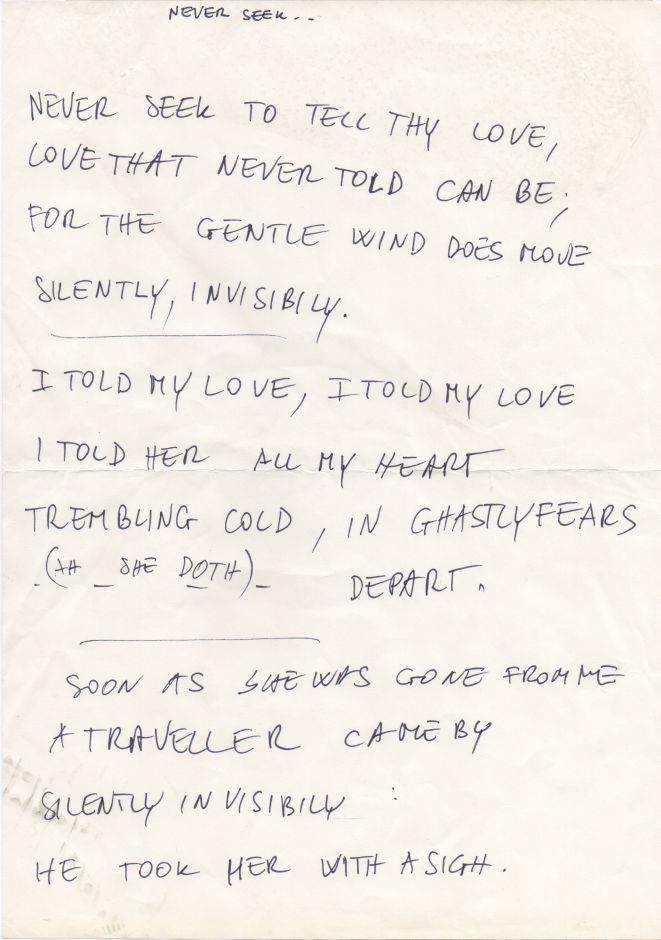 NEVER SEEK..
NEVER SEEK TO TELL THY LOVE,
LOVE THAT NEVER TOLD CAN BE;
FOR THE GENTLE WIND DOES MOVE
SILENTLY, INVISIBILY.
I TOLD MY LOVE, I TOLD MY LOVE
I TOLD HER ALL MY HEART
TREMBLING COLD, IN GHASTLY FEARS
_(AH _ SHE DOTH)_ DEPART.
SOON AS SHE WAS GONE FROM ME
A TRAVELLER CAME BY
SILENTLY INVISIBILY :
HE TOOK HER WITH A SIGH.